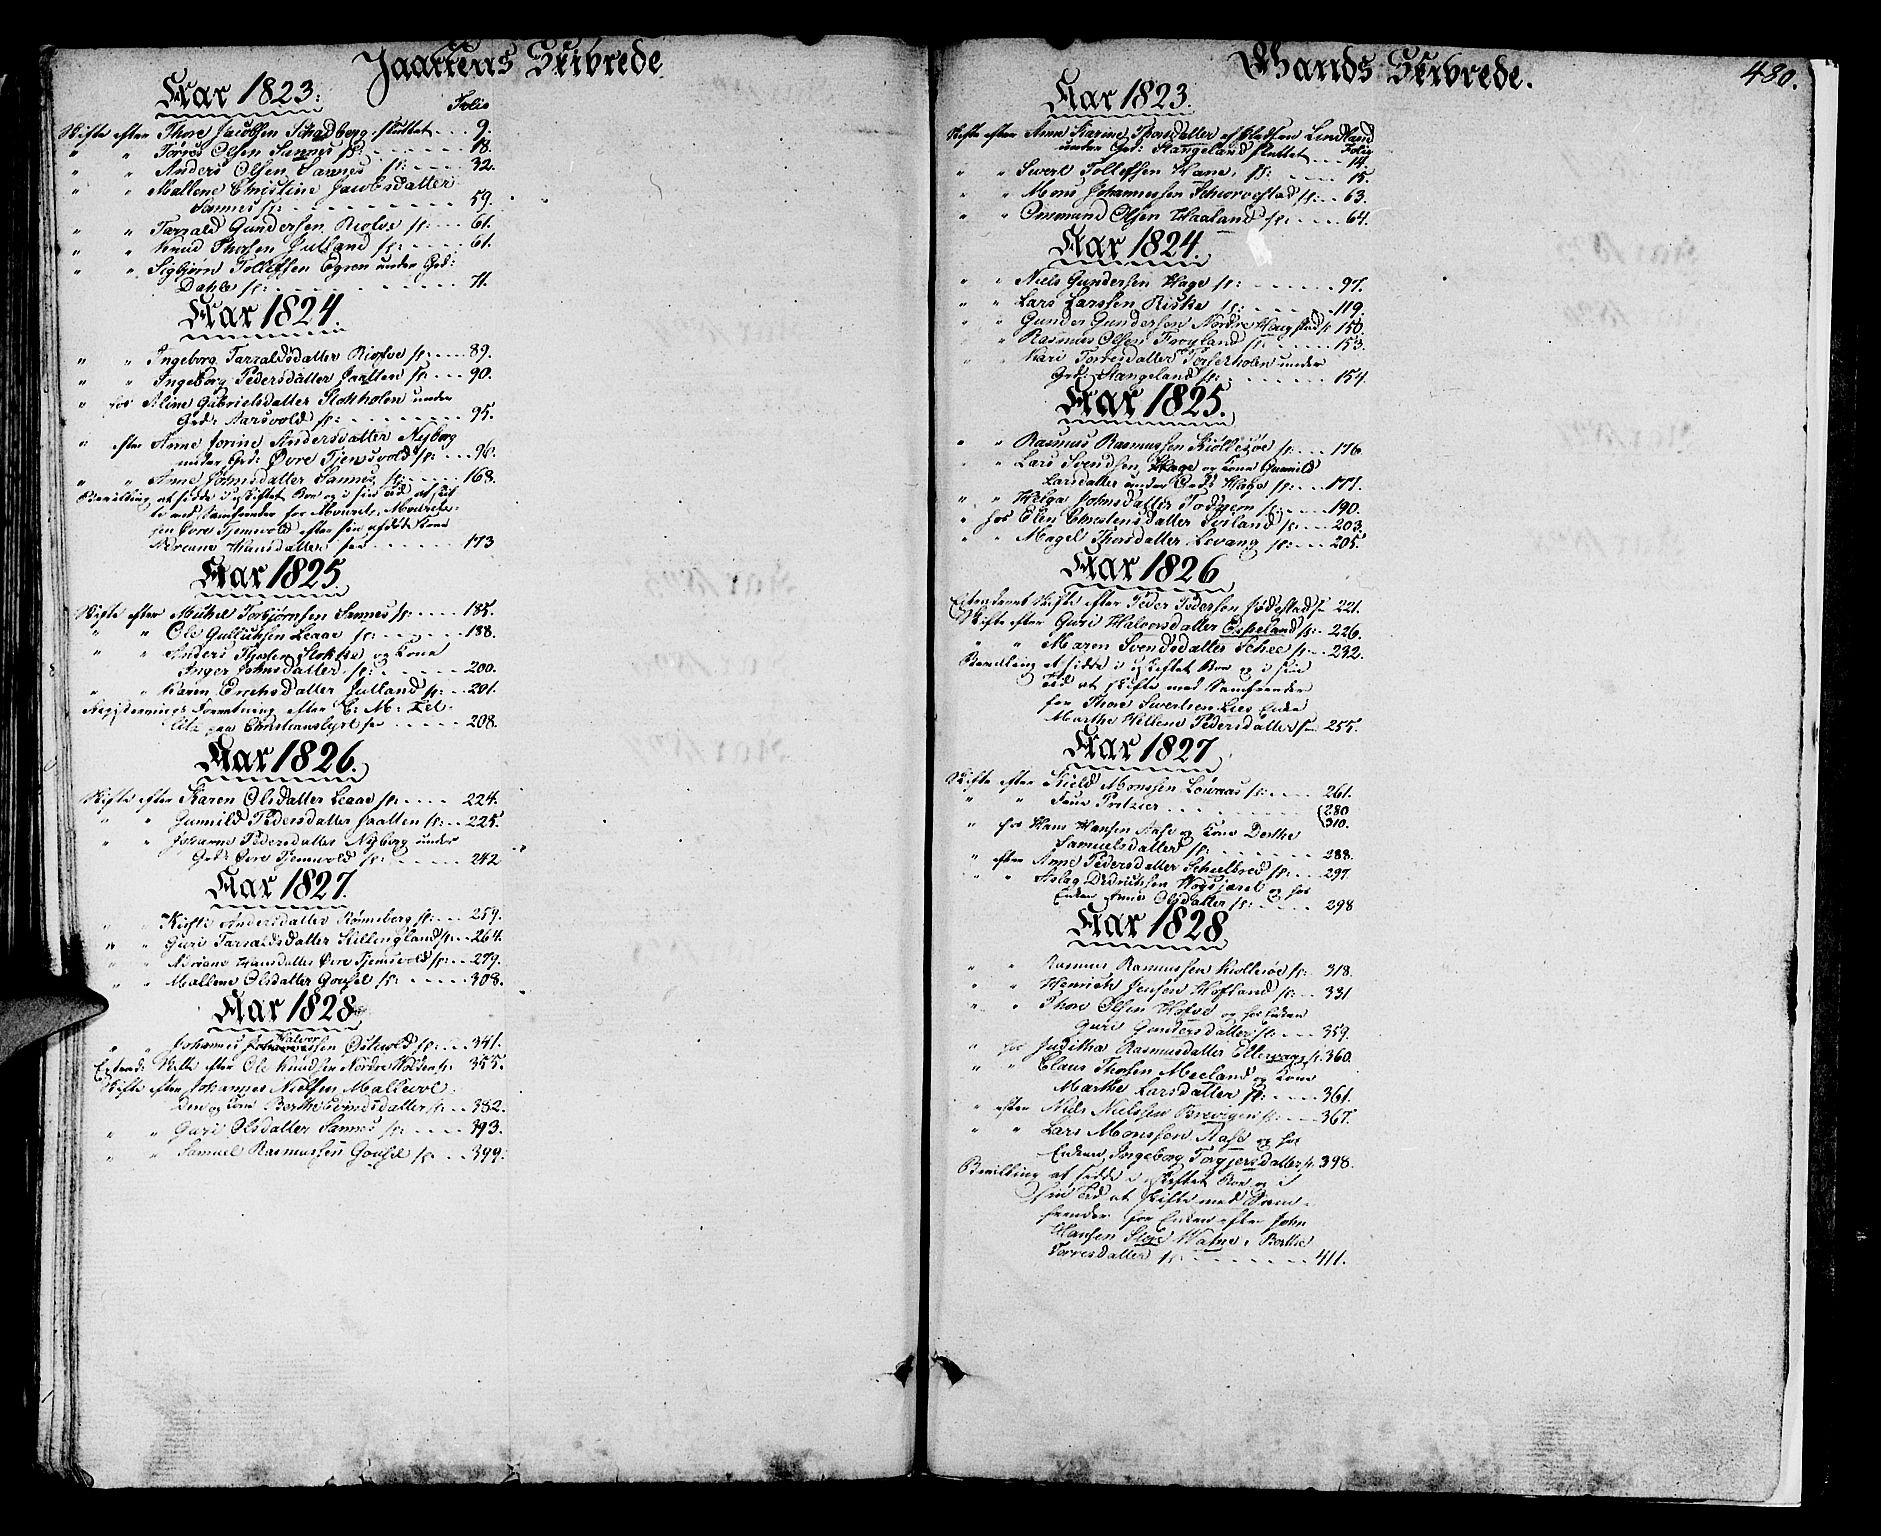 Jaattens Skibrede
Aar 1823.
Folio
Skifte efter Thore Jacobsen Schadberg sluttet 9.
" " Torres Olsen Sannes s: 18.
" " Anders Olsen Sannes s: 32.
" " Mallene Christine Jacobsdatter
Sannes s: 59.
" " Tarrald Gundersen Riofve s: 61.
" " Knud Thorsen Jutland s: 61.
" " Sigbjørn Tollefsen Egren under Grd:
Dahle s: 71.
Aar 1824.
" " Ingeborg Tarraldsdatter Riofve s: 89.
" " Ingeborg Pedersdatter Jaatten s: 90.
" hos Aline Gabrielsdatter Stokholen under
Grd: Aarsvold s: 95.
" efter Anne Jorine Andersdatter Nyborg
under Grd: Øvre Tjensvold s: 96.
" " Anne Johnsdatter Sannes s: 168.
Bevilling at sidde i uskiftet Boe og i sin tid at skif
te med Samfrender for Mourits Mourits-
sen Øvre Tjensvold efter sin afdøde Kone
Adreane Hansdatter s: 173
Aar 1825
Skifte efter Mickel Torbjørnsen Sannes s: 185.
" " Ole Gullichsen Leaae s: 188.
" " Anders Thosen Stokke og Kone
Inger Johnsdatter s: 200.
" " Karen Erichsdatter Jutland s: 201.
Registrerings Forretning efter C: M: Zet
litz paa Christianslyst s: 208.
Aar 1826.
Skifte efter Karen Olsdatter Leaae s: 224.
" " Gunnild Pedersdatter Jaatten s: 225.
" " Johanne Pedersdatter Nyborg under
Grd: Øvre Tjensvold s: 242
Aar 1827.
" " Kisti Andersdatter Rønneberg s: 259.
" " Guri Tarraldsdatter Stillingland s: 264.
" " Adriane Hansdatter Øvre Tjensvold s: 279.
" " Mallene Olsdatter Gousel s: 308.
Aar 1828
Halvor
" " Johannes Johannessen Ostvold s: 341.
Extrad: Skifte efter Ole Knudsen Nordre Rodden s: 355.
Skifte efter Johannes Nielsen Mallevol-
den og Kone Berthe Svendsdatter s: 382.
" " Guri Olsdatter Sannes s: 393.
" " Samuel Rasmussen Gousel s: 399.
Gands Skibrede.
480.
Aar 1823.
Skifte efter Anne Karine Thorsdatter af Pladsen Lindland
under Grd: Stangeland sluttet Folio 14.
" " Sivert Tollefsen Hane s: 15.
" " Mons Johannessen Schiorvestad s: 63.
" " Ommund Olsen Haaland s: 64.
Aar 1824.
" " Niels Gundersen Hage s: 97.
" " Lars Larsen Riske s: 119.
" " Gunder Gundersen Nordre Haugstad s: 150.
" " Rasmus Olsen Frøyland s: 153.
" " Kari Torresdatter Torferholen under
Grd: Stangeland s: 154.
Aar 1825.
" " Rasmus Rasmussen Kiollesoe s: 176
" " Lars Svendsen Hage og Kone Gunnild
Larsdatter under Grds Hage s: 177.
" " Helga Johnsdatter Todnem s: 190.
" hos Elen Christensdatter Sviland s: 203.
" " Magel Thorsdatter Levang s: 205.
Aar 1826
Extraderet Skifte efter Peder Pedersen Jødestad s: 221.
Skifte efter Guri Halvorsdatter Espeland s: 226.
" Maren Svendsdatter Schee s: 232.
Bevilling at sidde i uskiftet Boe og i sin
Tid at skifte med Samfrender
for Thore Sivertsen Lies Enke
Marthe Hellene Pedersdatter s: 255.
Aar 1827
Skifte efter Kield Monssen Lovraas s: 261.
" " Frue Pritzier 280
310.
" hos Hans Hansen Aase og Kone Dorthe
Samuelsdatter s: 288.
" efter Anne Pedersdatter Schielbred s: 297.
" " Aslag Didrichsen Hogsjaret og hos
Enken Anne Olsdatter s: 298
Aar 1828
" " Rasmus Rasmussen Kiollesoe s: 318.
" " Henrich Jensen Hofland s: 331
" " Thore Olsen Hofve og hos Enken
Guri Gundersdatter s: 359.
" hos Juditha Rasmusdatter Eltervaag s: 360.
" " Claus Thorsen Meeland og Kone
Marthe Larsdatter s: 361.
" efter Niels Nielsen Brevigen s: 367.
" " Lars Monssen Aase og hos
Enken Ingeborg Torgjersdatter s: 398.
Bevilling at sidde i uskiftet Boe og i
sin Tid at skifte med Sam-
frender for Enken efter John
Hansen Store Vatne, Berthe
Torresdatter s: 411.